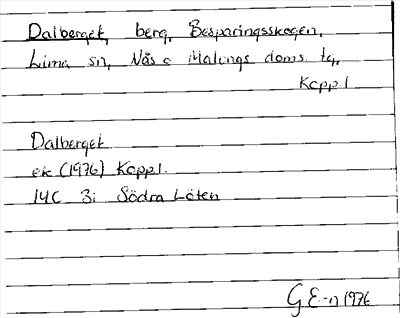 Dalberget, berg, Besparingsskogen,
Lima sn, Nås o Malungs doms. tg,
Koppl
Dalberget
ek (1976) Koppl.
14C 3i Södra Löten
G E-n 1976